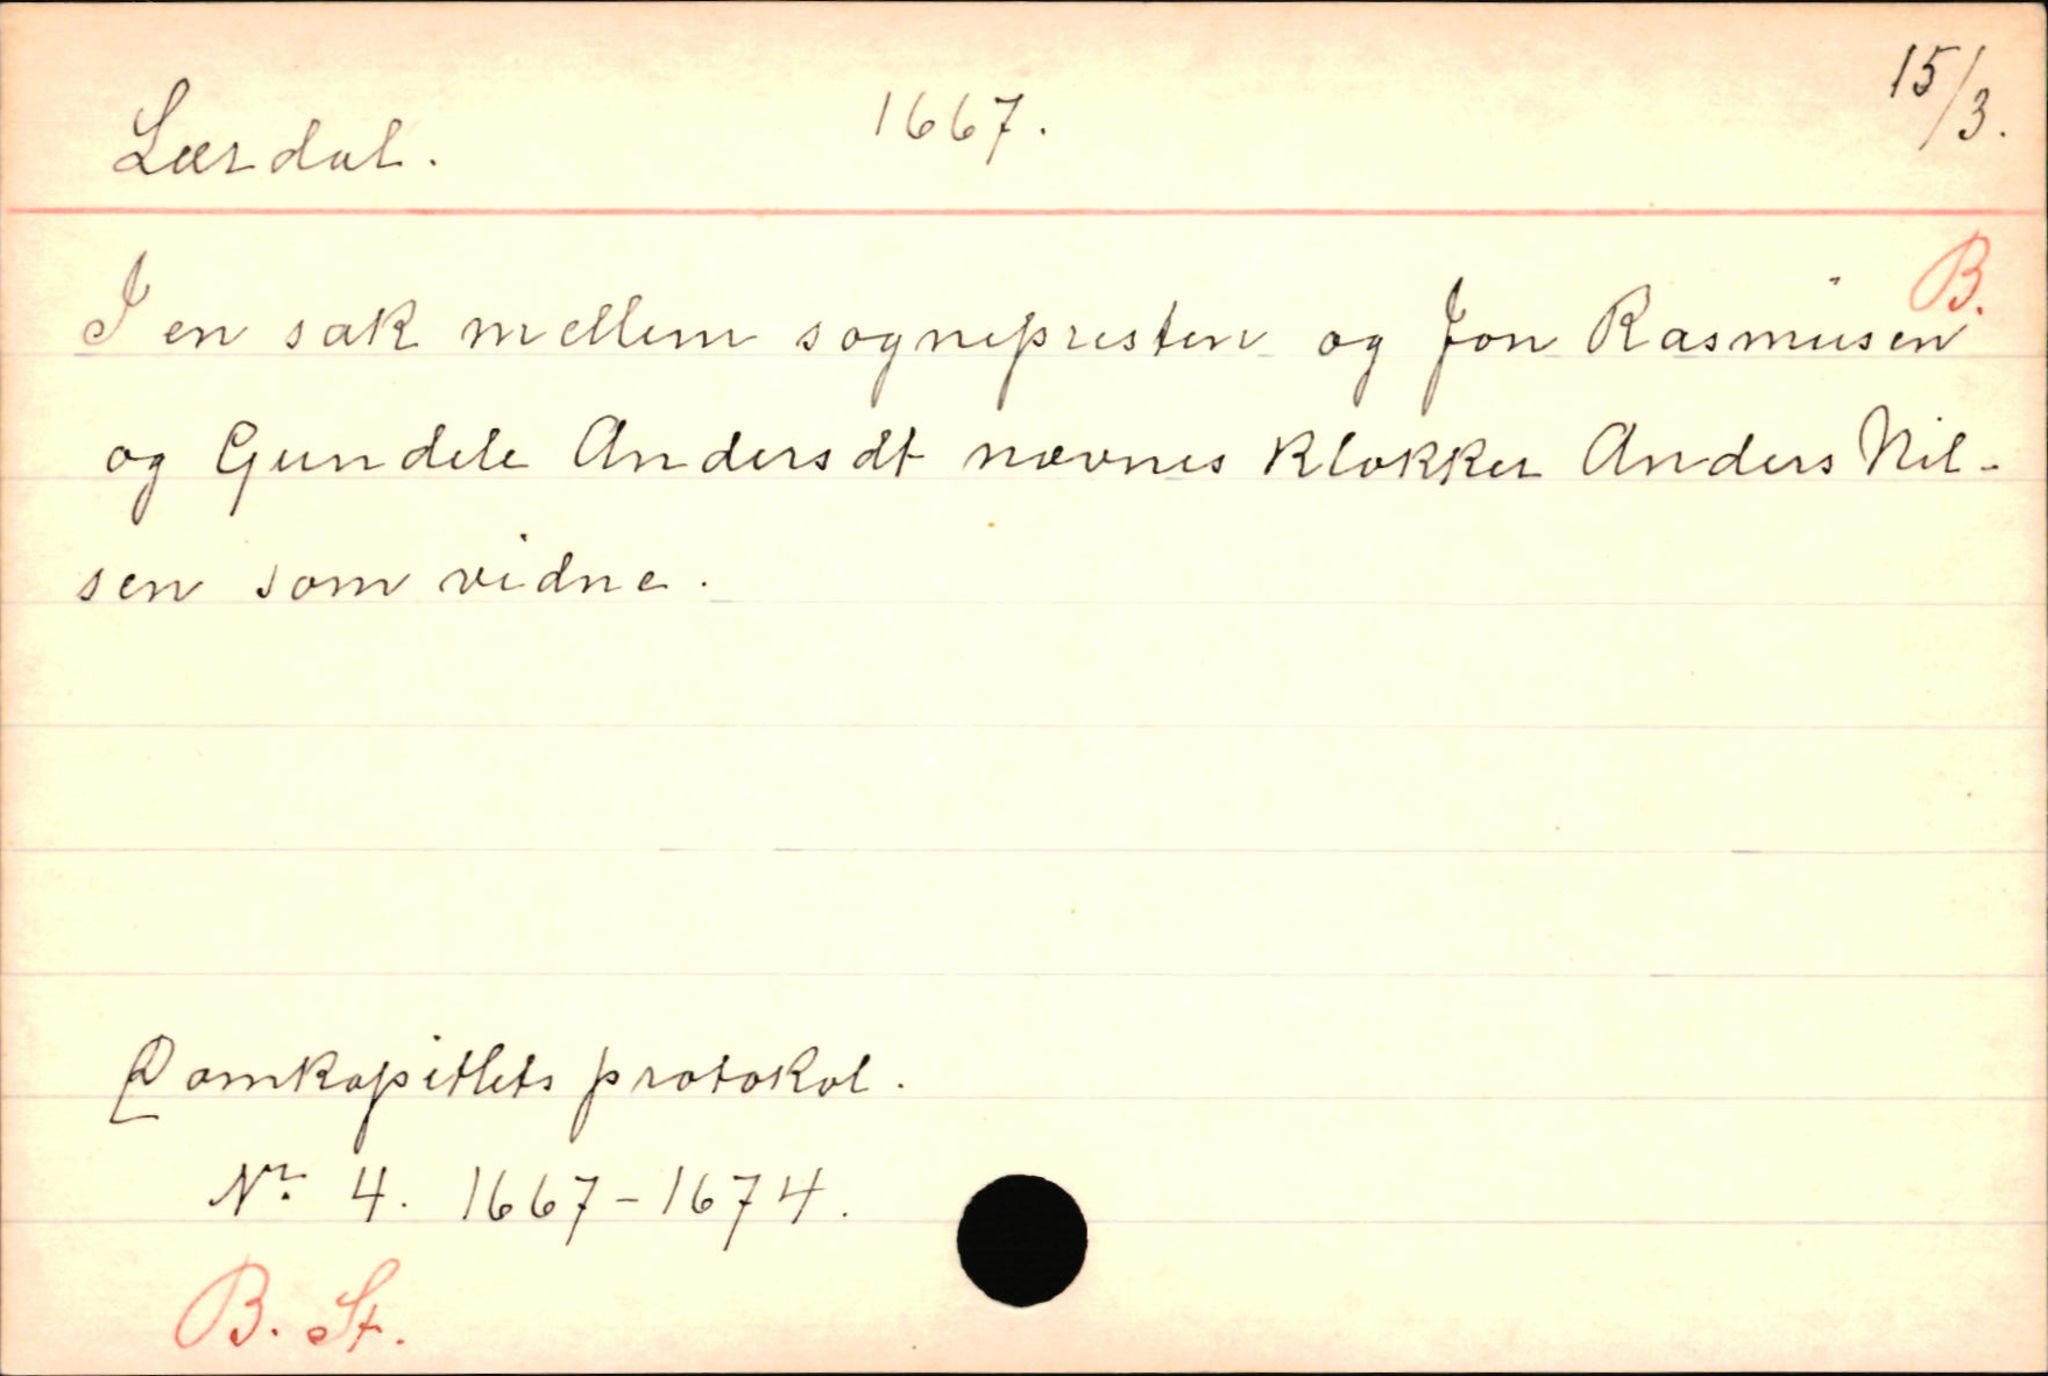 Lærdal. 1667. 15/3.
B.
I en sak mellem sognepresten og Jon Rasmusen
og Gundele Andersdt nævnes klokker Anders Nil-
sen som vidne.
Domkapitlets protokol.
Nr. 4. 1667-1674.
B. St.